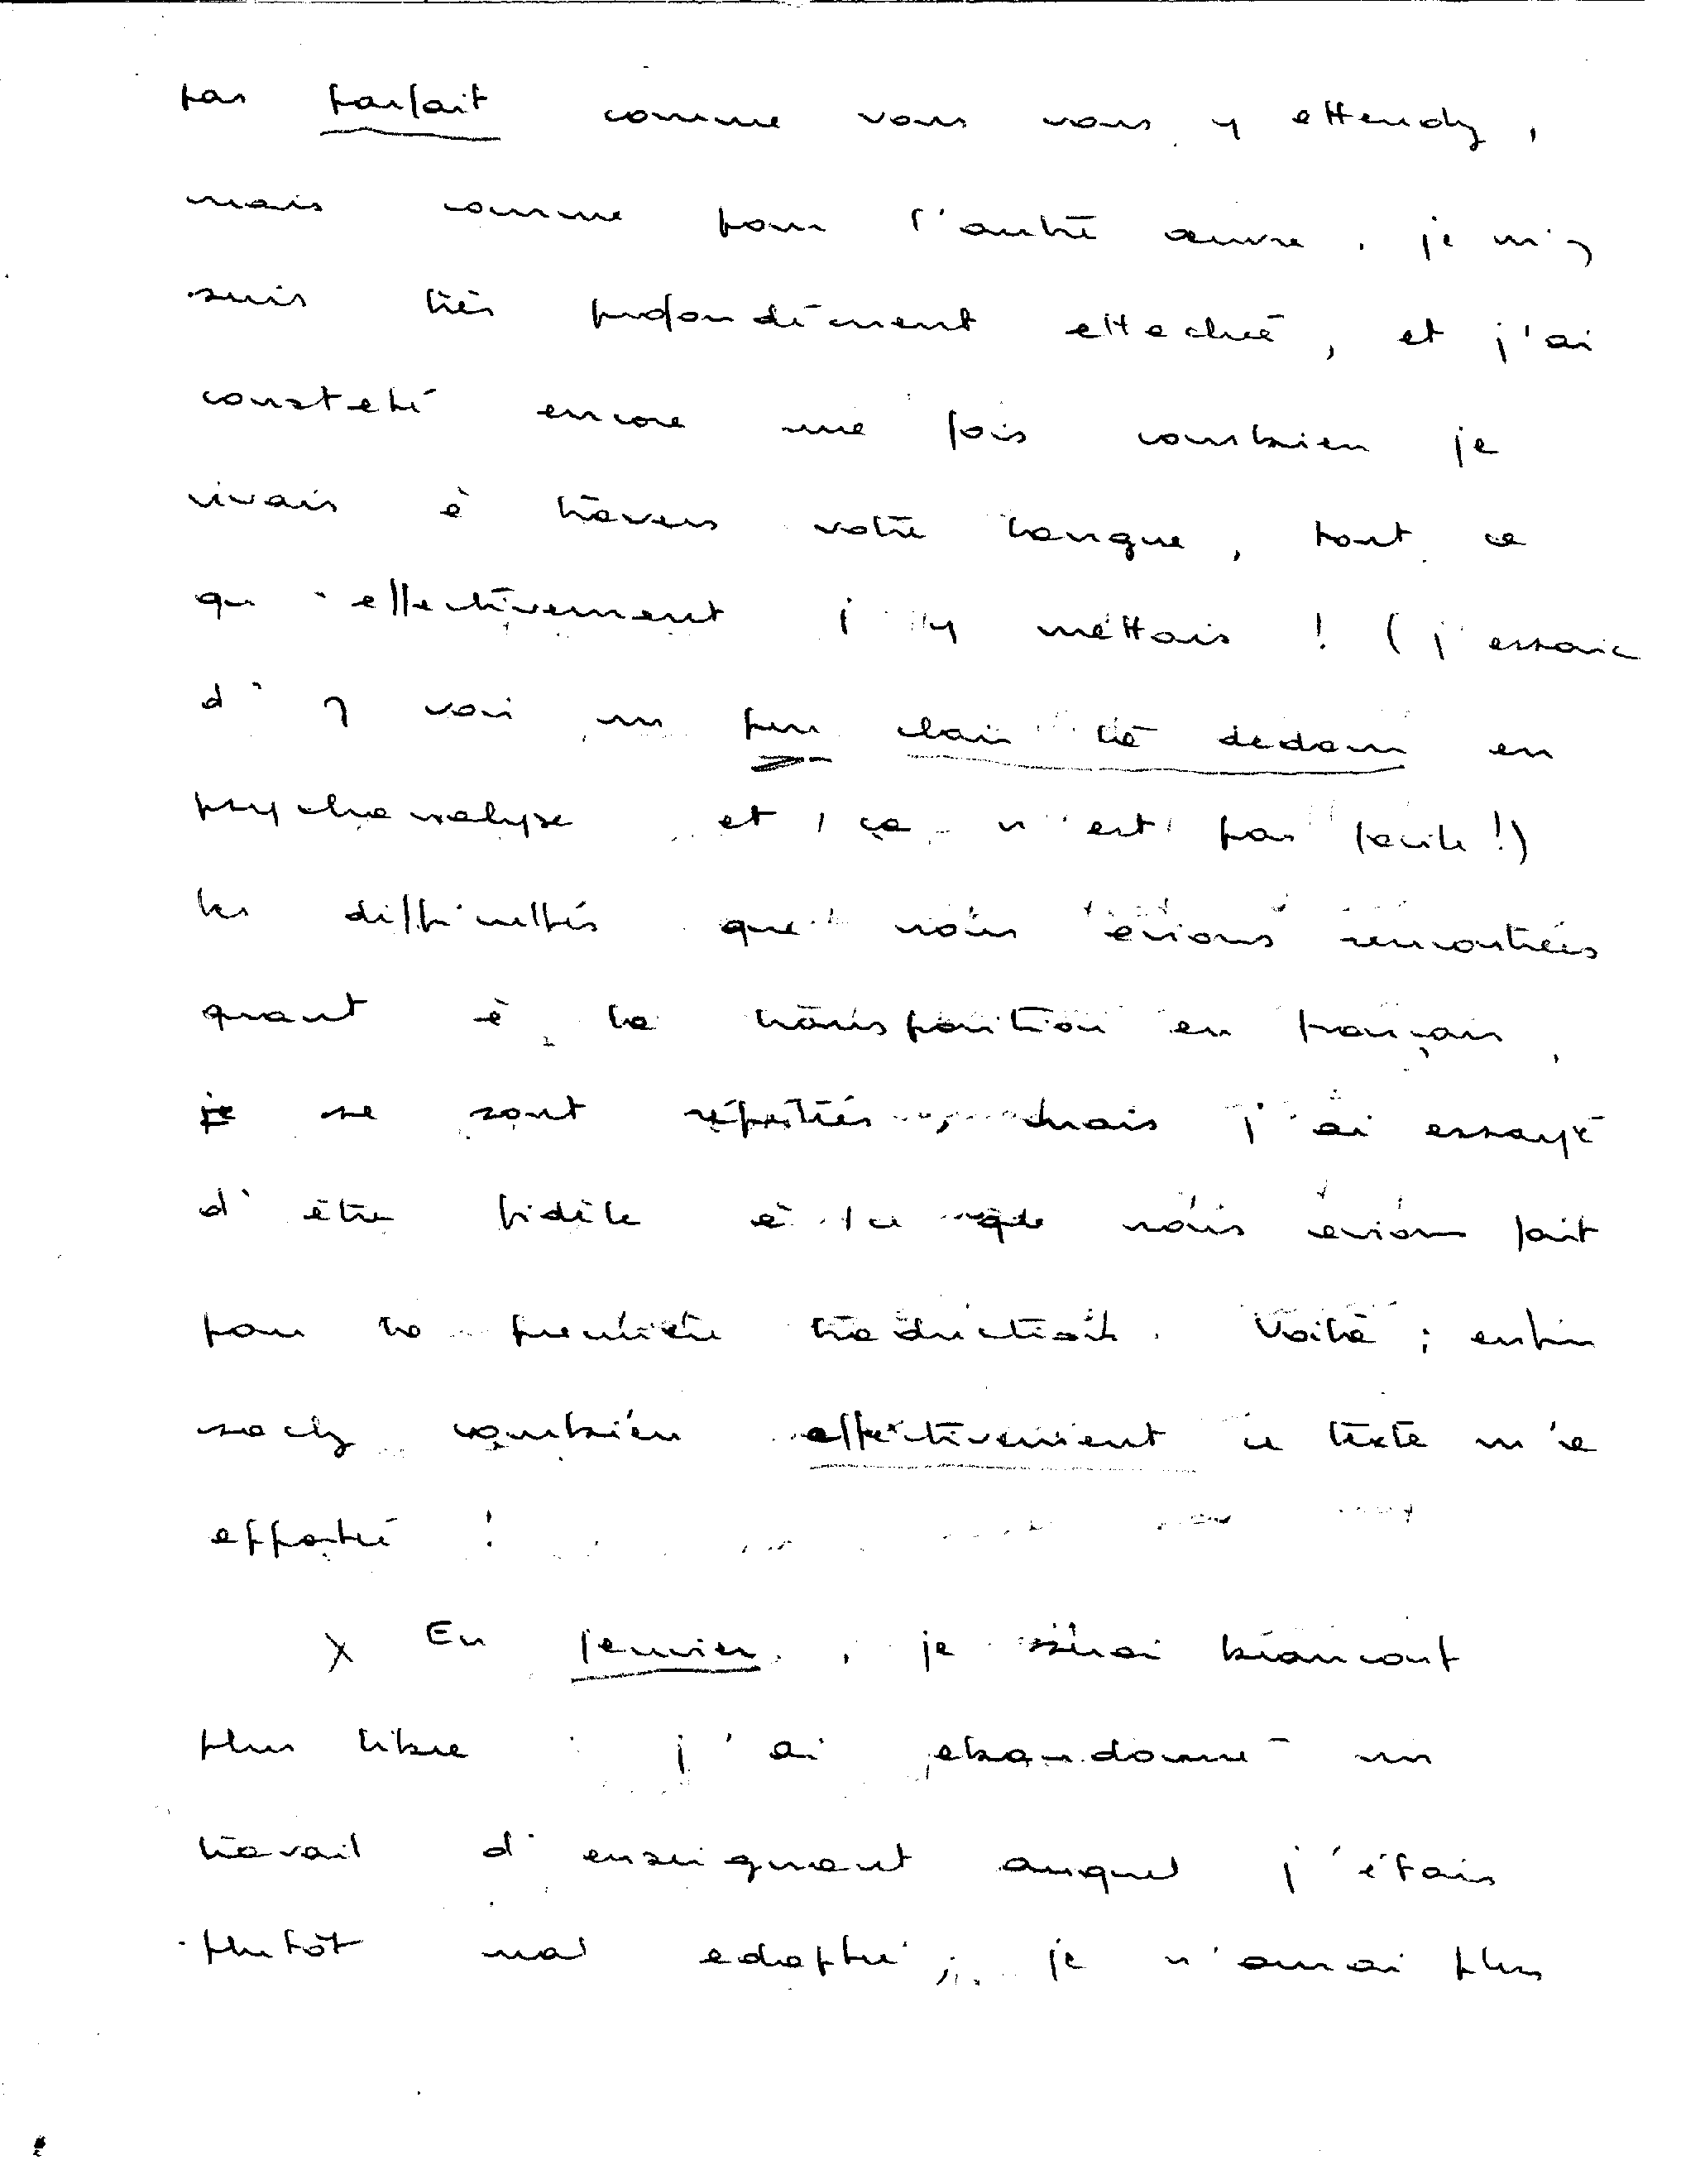 pas parfait comme vous vous y attendez,
mais comme pour l'autre œuvre, je m'y
suis très profondément attaché, et j'ai
constaté encore une fois combien je
vivais à travers votre langue, tout ce
qu'effectivement j'y mettais ! (j'essaie
d'y voir un peu clair là dedans en
psychanalyse et, ça n'est pas facile !)
les difficultés que nous avions rencontrées
quant à la transposition en français,
je se sont répétées, mais j'ai essayé
d'être fidèle à ce que nous avions fait
pour la première traduction. Voilà ; enfin
sachez combien effectivement ce texte m'a
apporté !
X En janvier, je serai beaucoup
plus libre : j'ai abandonné un
travail d'enseignant auquel j'étais
plutôt mal adapté ; je n'aurai plus